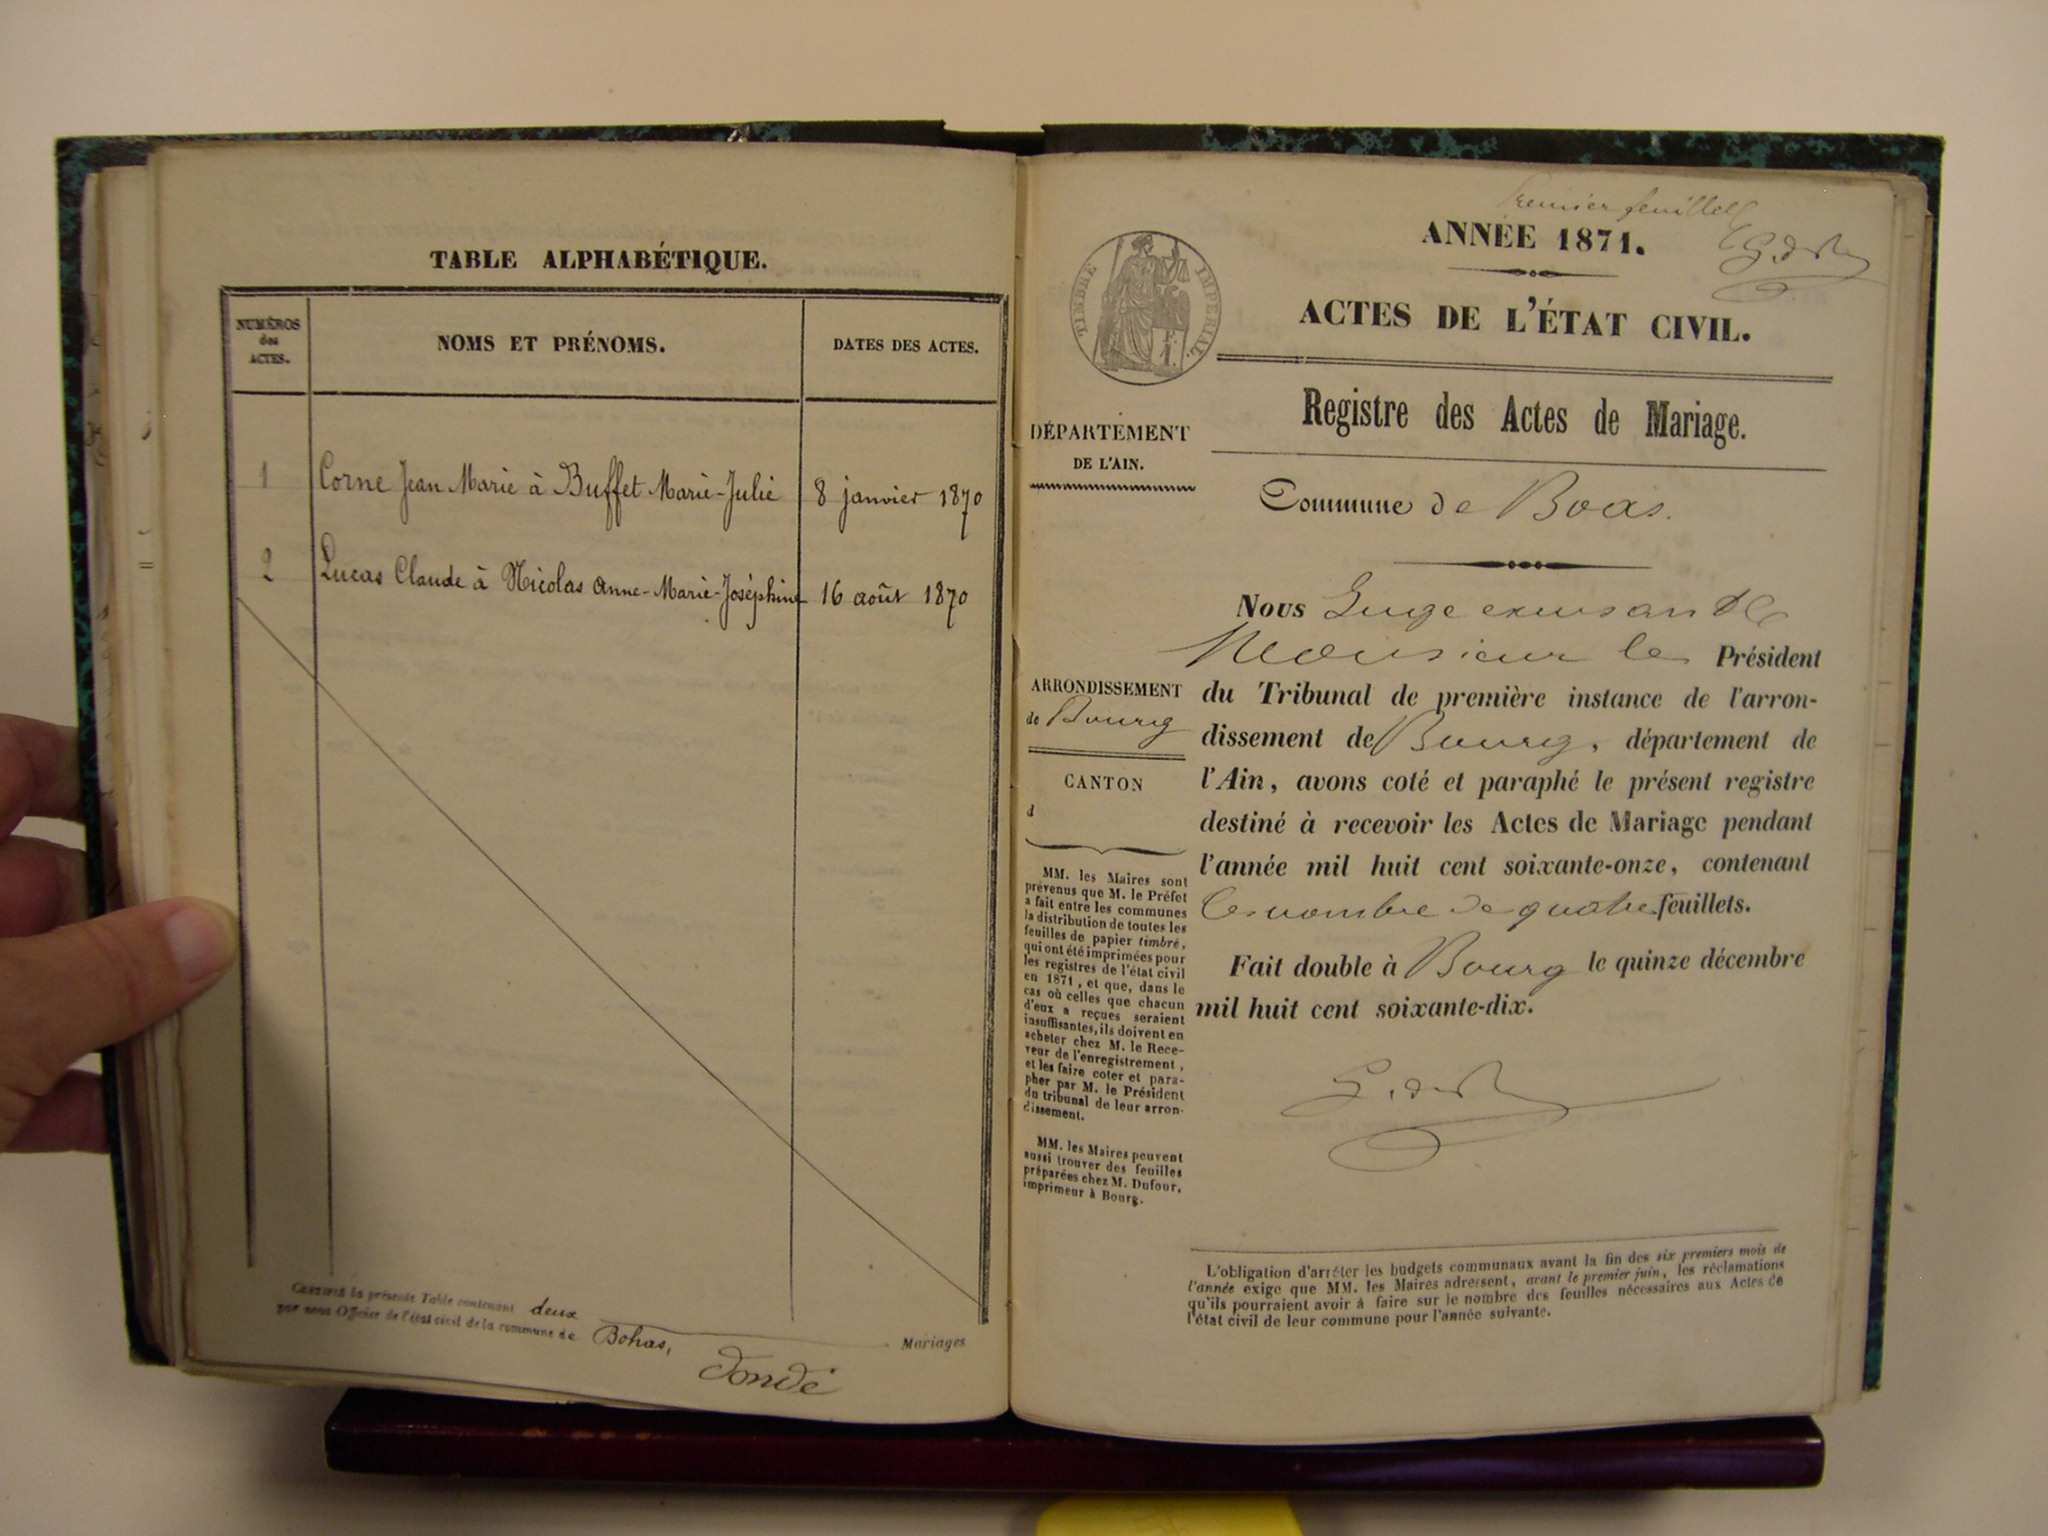 TABLE ALPHABÉTIQUE.
NUMÉROS
des
ACTES.
NOMS ET PRÉNOMS.
DATES DES ACTES.
1 Corne Jean Marie à Buffet Marie-Julie 8 janvier 1870
2 Lucas Claude à Nicolas Anne-Marie-Joséphine 16 août 1870
CERTIFIÉ la présente Table contenant deux Mariages
par nous Officier de l'état civil de la commune de Bohas,
Premier feuillet
ANNÉE 1871.
ACTES DE L'ÉTAT CIVIL.
TIMBRE IMPÉRIAL.
Registre des Actes de Mariage.
DÉPARTEMENT
DE L'AIN.
Commune de Boas.
Nous Juge
Monsieur le Président
du Tribunal de première instance de l'arron-
dissement de Bourg, département de
l'Ain, avons coté et paraphé le présent registre
destiné à recevoir les Actes de Mariage pendant
l'année mil huit cent soixante-onze, contenant
le nombre de quatre feuillets.
Fait double à Bourg le quinze décembre
mil huit cent soixante-dix.
ARRONDISSEMENT
de Bourg
CANTON
d
MM. les Maires sont
prévenus que M. le Préfet
a fait entre les communes
la distribution de toutes les
feuilles de papier timbré,
qui ont été imprimées pour
les registres de l'état civil
en 1871, et que, dans le
cas où celles que chacun
d'eux a reçues seraient
insuffisantes, ils doivent en
acheter chez M. le Rece-
veur de l'enregistrement,
et les faire coter et para-
pher par M. le Président
du tribunal de leur arron-
dissement.
MM. les Maires peuvent
aussi trouver des feuilles
préparées chez M. Dufour,
imprimeur à Bourg.
L'obligation d'arrêter les budgets communaux avant la fin des six premiers mois de
l'année exige que MM. les Maires adressent, avant le premier juin, les réclamations
qu'ils pourraient avoir à faire sur le nombre des feuilles nécessaires aux Actes de
l'état civil de leur commune pour l'année suivante.